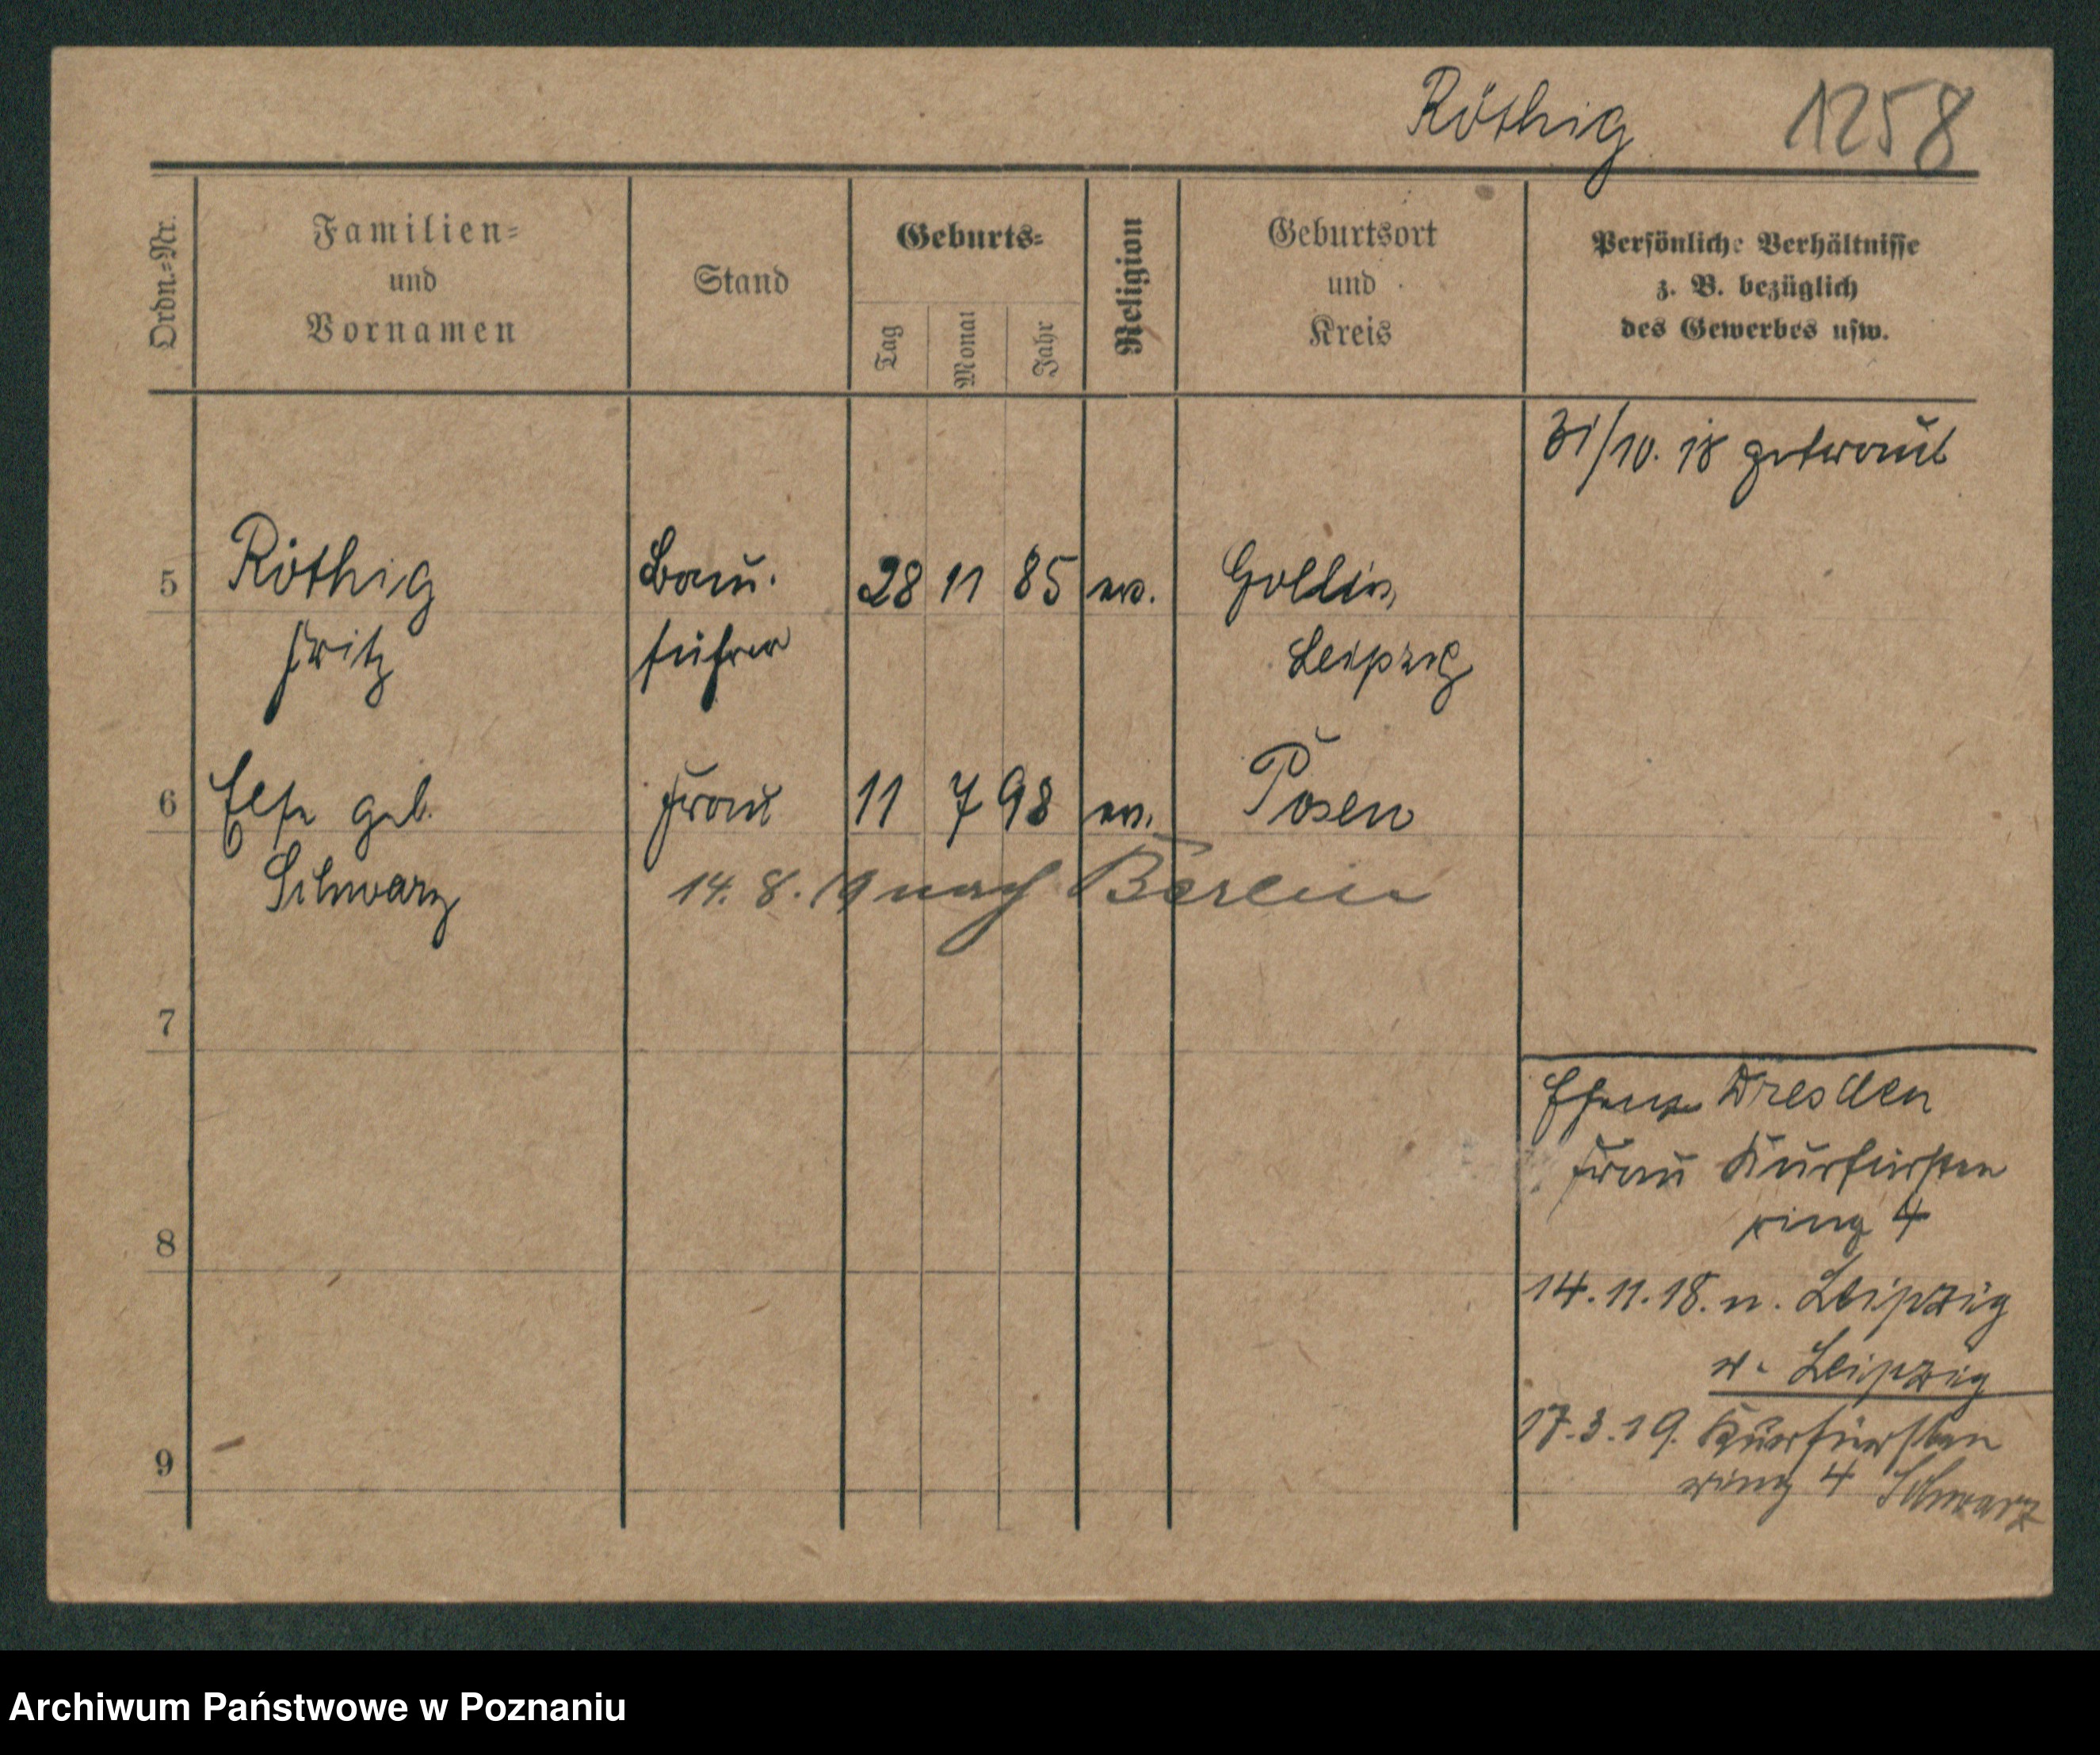 Röthig 1258
Ordn.=Nr.
Familien=
und
Vornamen
Stand
Geburts=
Tag
Monat
Jahr
Religion
Geburtsort
und
Kreis
Persönliche Verhältnisse
z. B. bezüglich
des Gewerbes usw.
31/10. 18 getraut
5 Röthig Bau. 28 11 85 ev.
Fritz führer Leipzig
6 Else geb. Frau 11 7 98 ev. Posen
Schwarz 14. 8. 19 nach Berlin
7
Dresden
Frau Kurfürsten
8 ring 4
14. 11. 18. n. Leipzig
v. Leipzig
17. 3. 19. Kurfürsten
9 ring 4 Schwarz
Archiwum Państwowe w Poznaniu